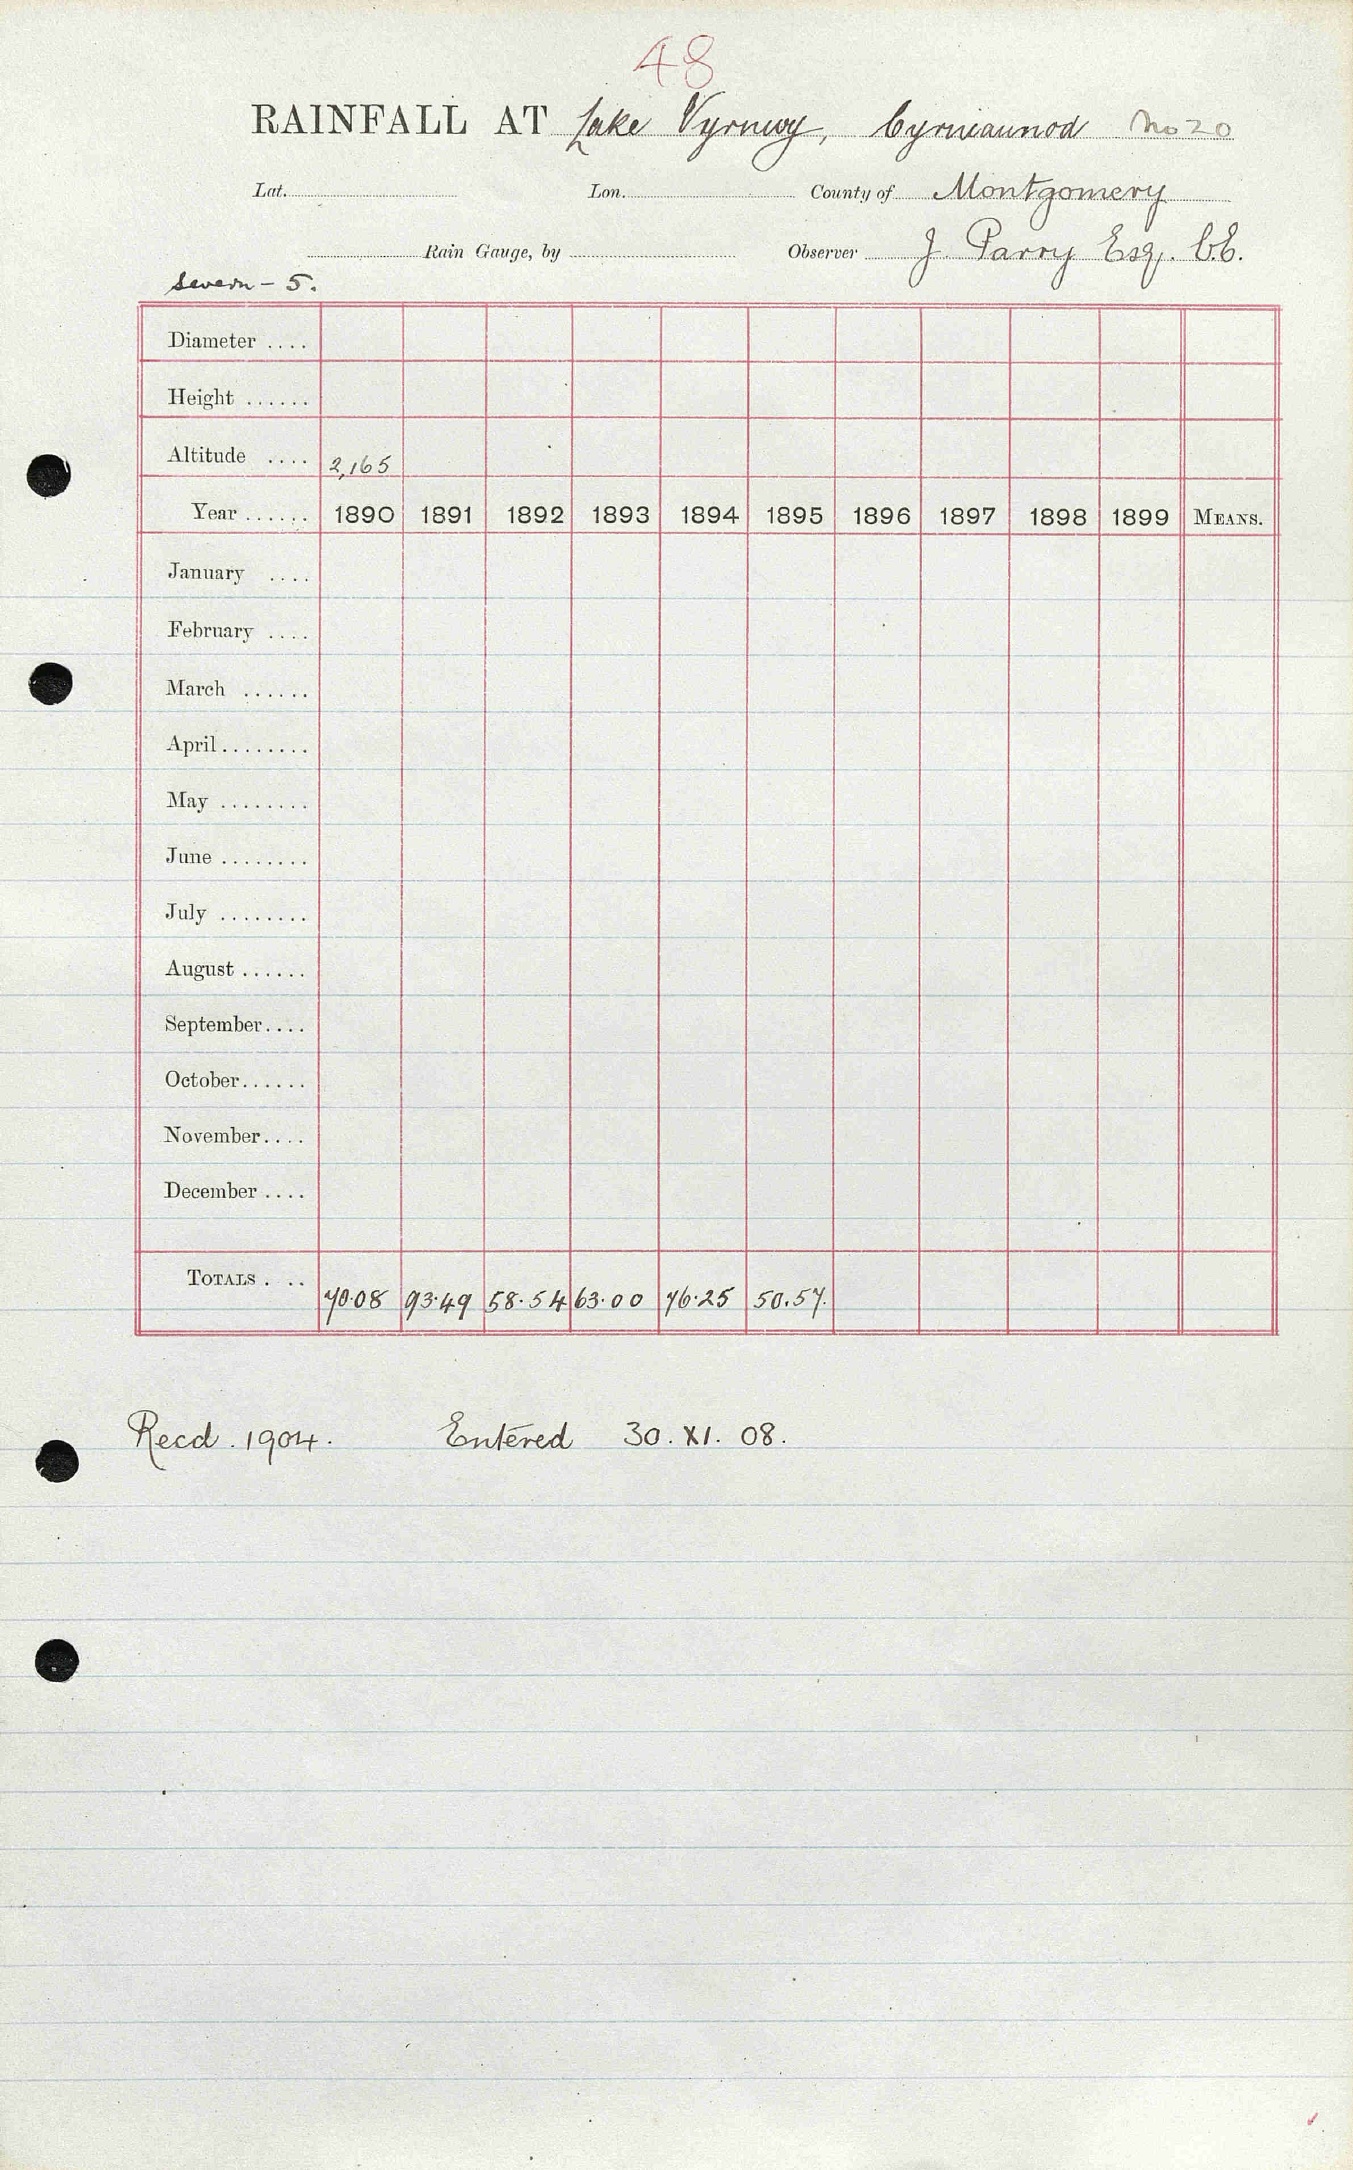 48
RAINFALL AT Lake Vyrnwy, Cyrniaunod No 20
Lat. Lon. County of Montgomery
Rain Gauge, by Observer J. Parry Esq. C.E.
Severn - 5.
Diameter ....
Height ......
Altitude .... 2,165
Year ...... 1890 1891 1892 1893 1894 1895 1896 1897 1898 1899 MEANS.
January ....
February ....
March ......
April ........
May ........
June ........
July ........
August ......
September....
October......
November....
December ....
TOTALS . .. 70.08 93.49 58.54 63.00 76.25 50.57.
Recd. 1904. Entered 30. XI. 08.